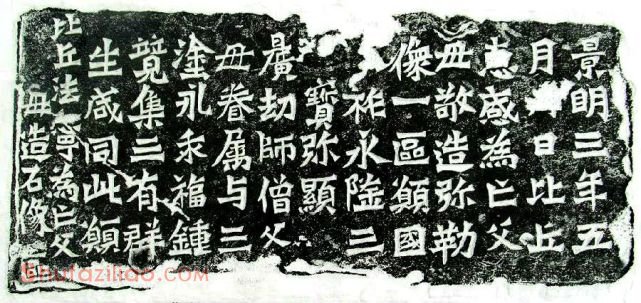 景明三年五
月日比丘
惠感為亡父
母敬造弥勒
像一區願國
祚永隆三
寶弥顯
曠劫師僧父
母眷属与三
塗永乖福鍾
竟集三有群
生咸同此願
比丘法寧為亡父
母造石像一區
Shufaziliao.com